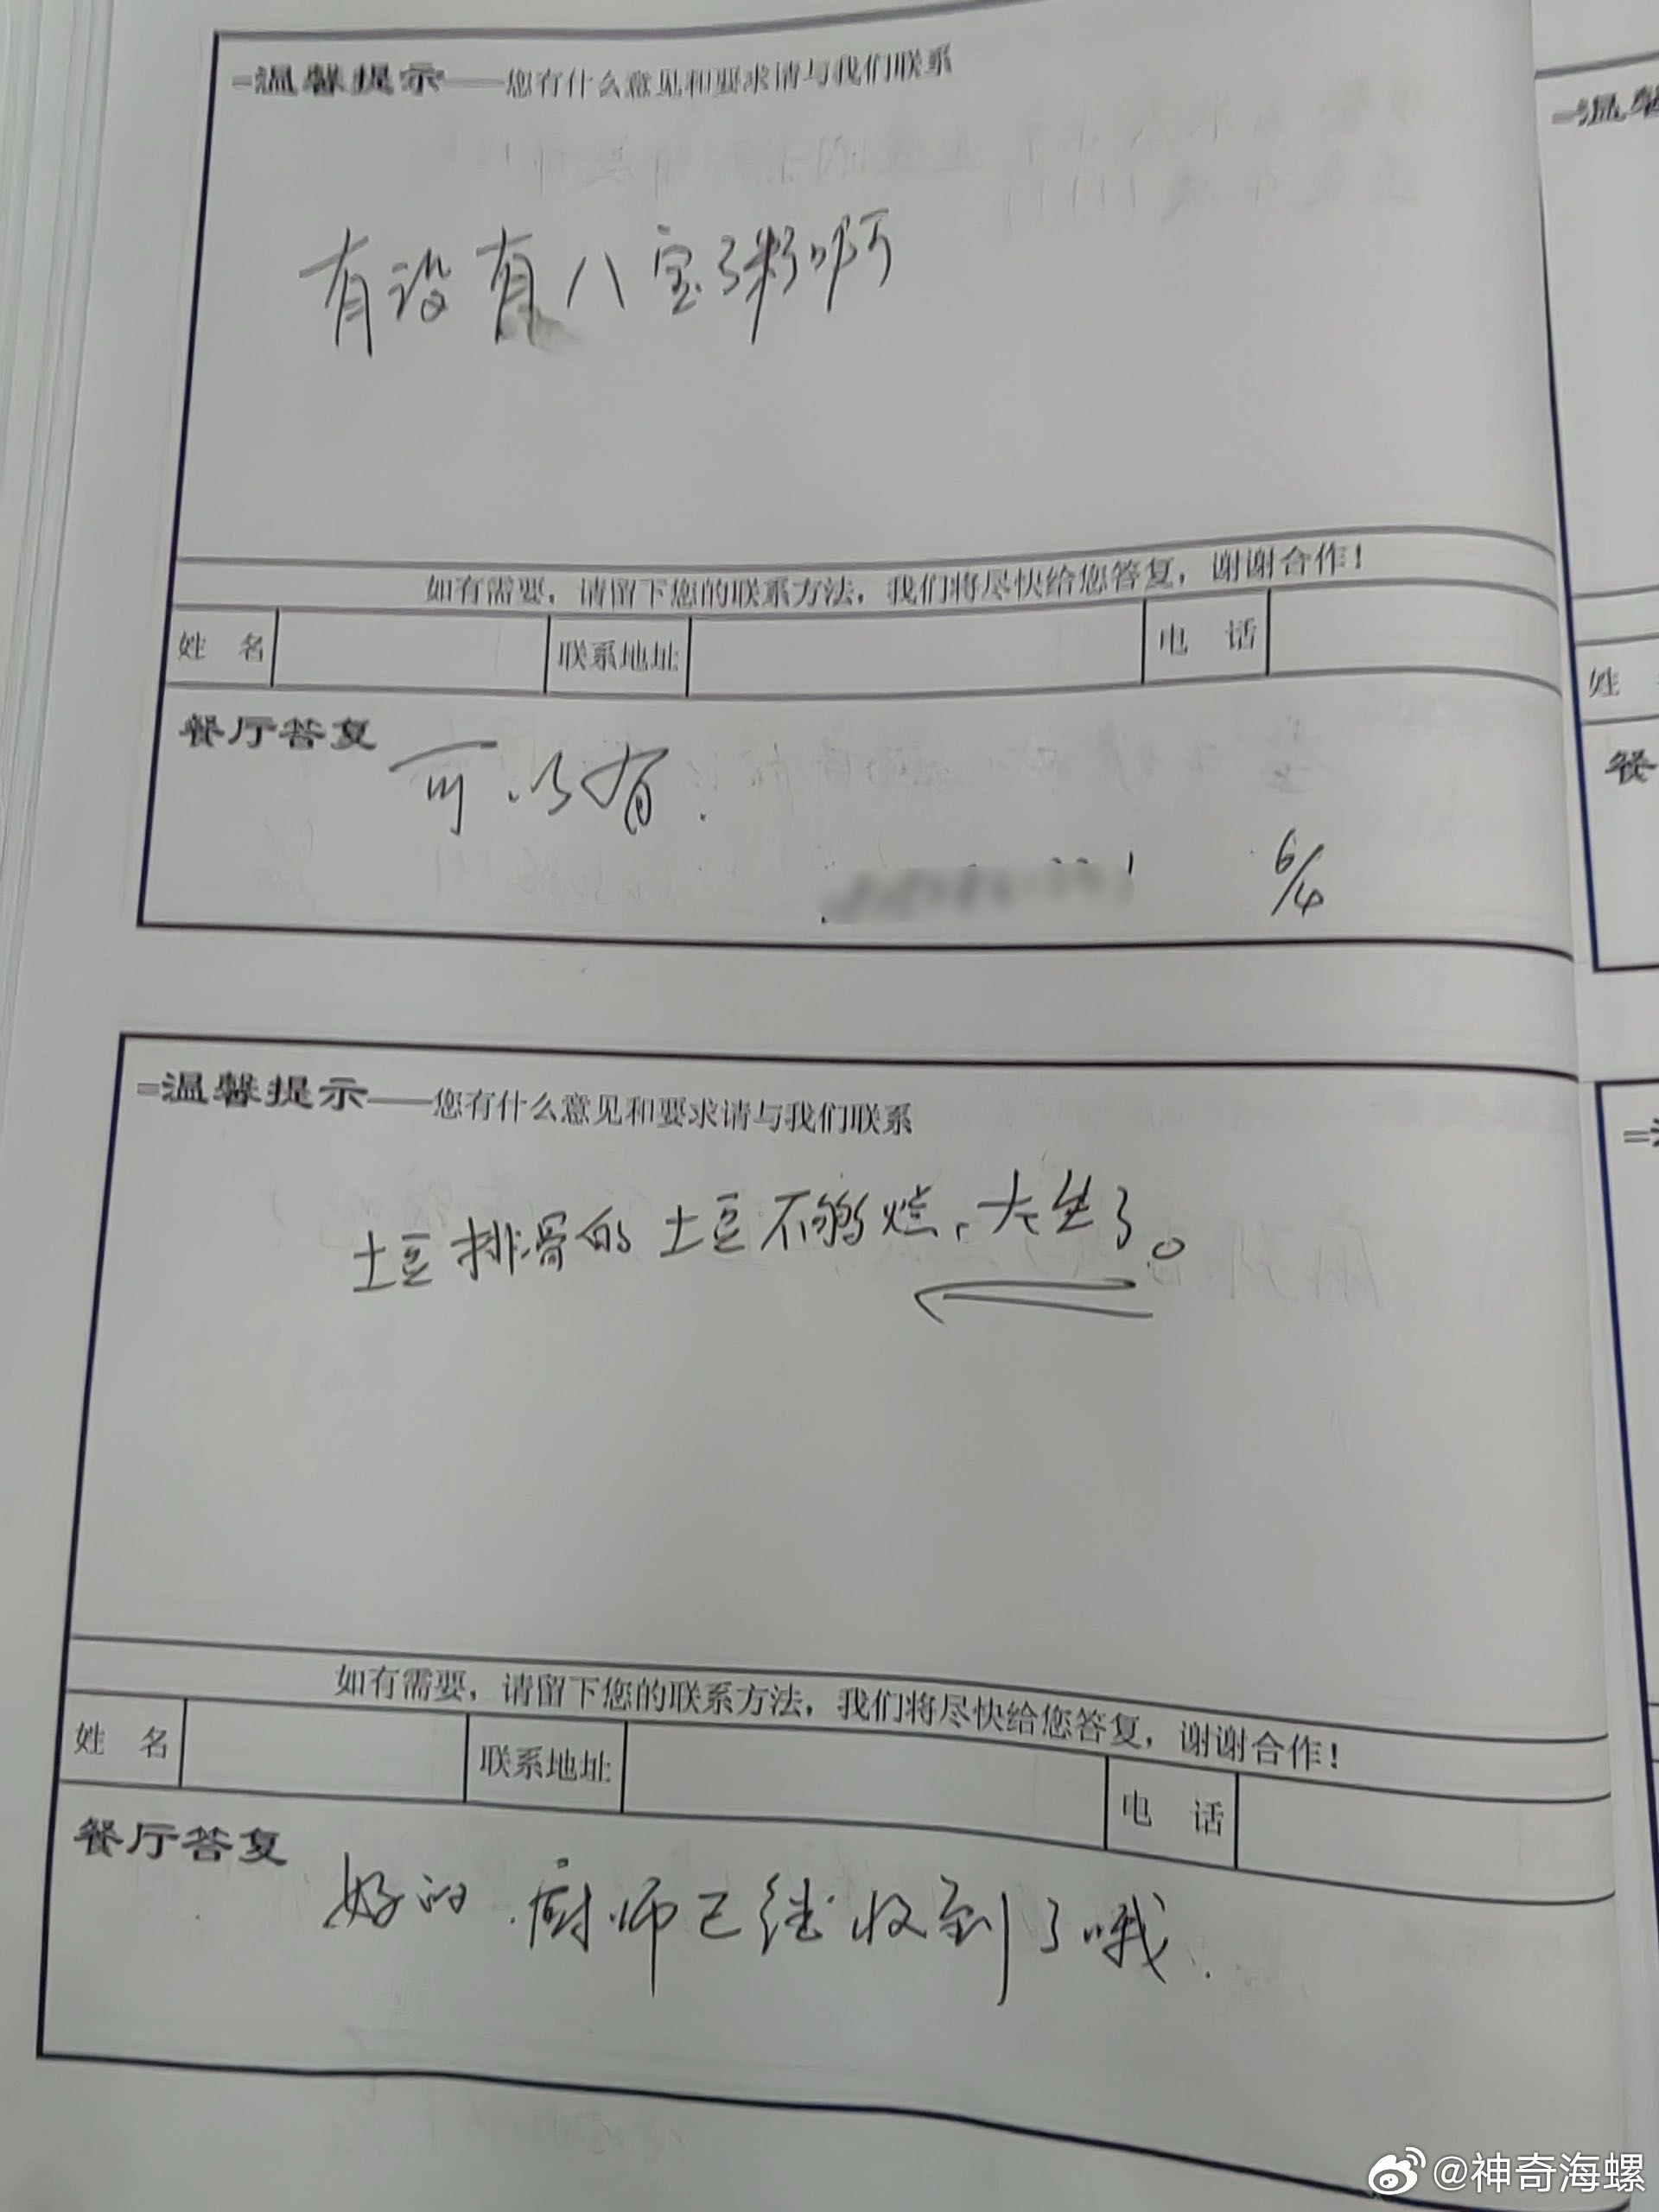 =温馨提示——您有什么意见和要求请与我们联系
有没有八宝粥啊
如有需要，请留下您的联系方法，我们将尽快给您答复，谢谢合作！
姓 名 联系地址 电 话
餐厅答复
可以有.
6/4
=温馨提示——您有什么意见和要求请与我们联系
土豆排骨的土豆不够烂，太生了。
如有需要，请留下您的联系方法，我们将尽快给您答复，谢谢合作！
姓 名 联系地址 电 话
餐厅答复
好的.厨师已经收到了哦.
=温馨
姓
餐
@神奇海螺